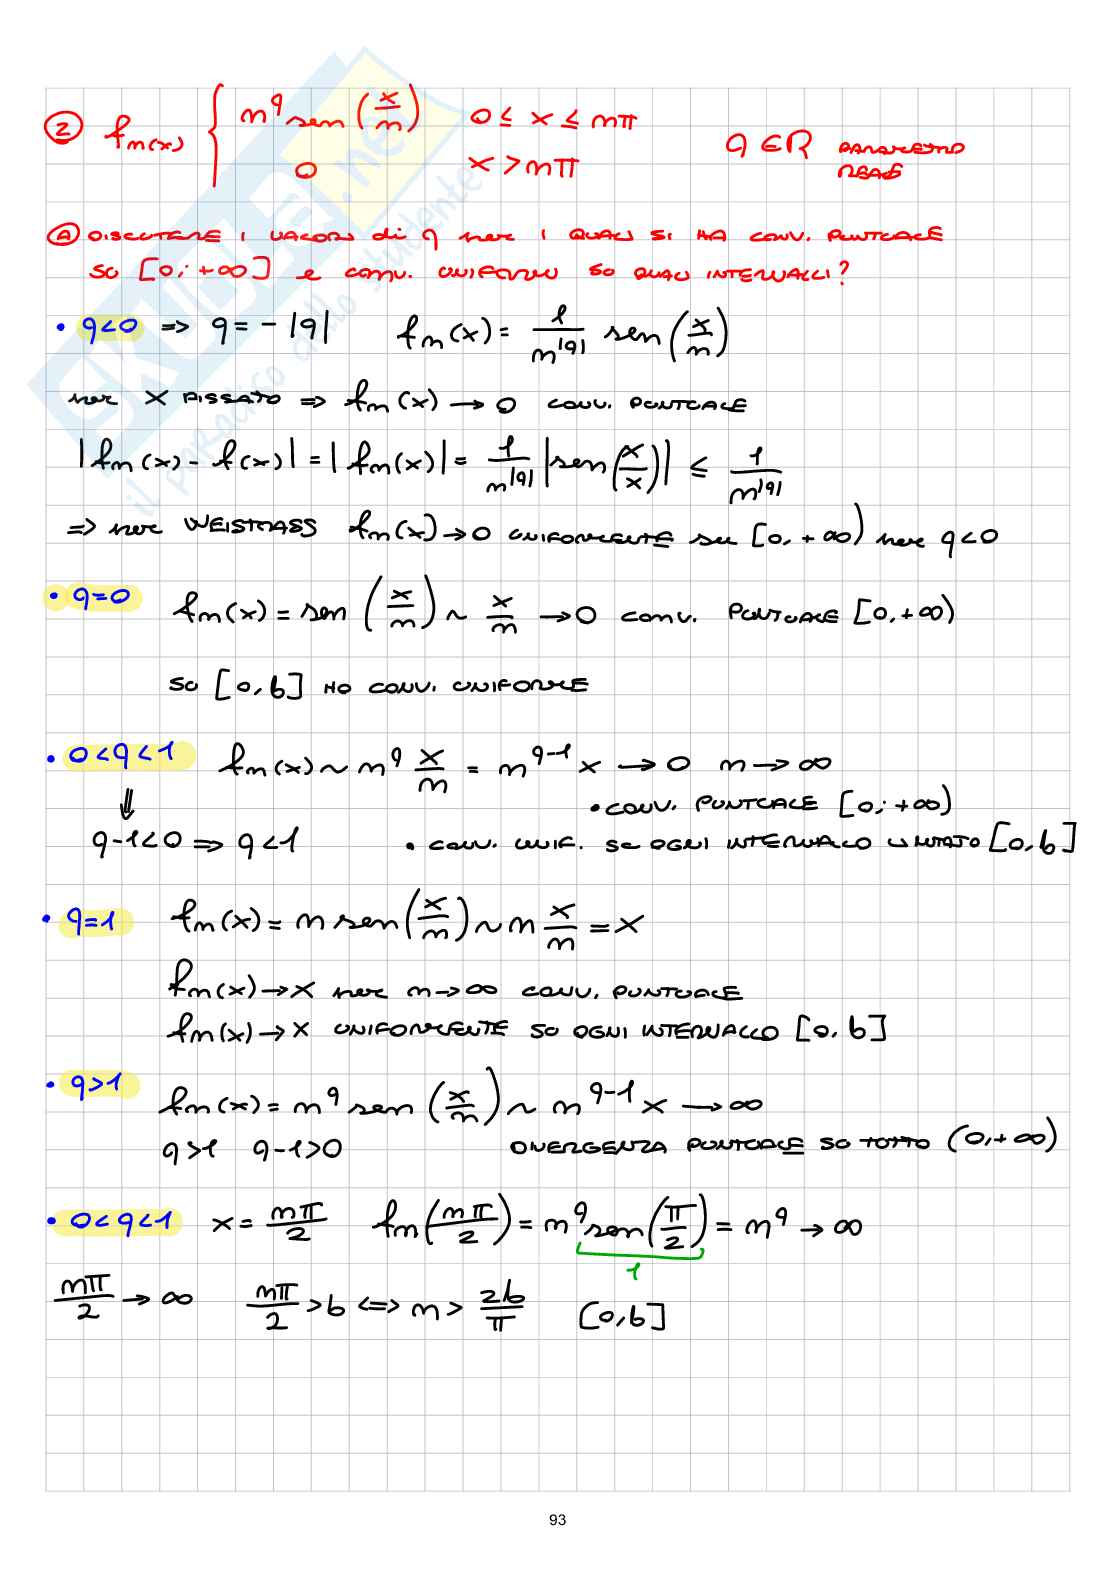 ② fm(x) { m^q sen (x/m) 0 ≤ x ≤ mπ
0 x > mπ
q ∈ R PARAMETRO REALE
Ⓐ DISCUTERE I VALORI di q per I QUALI SI HA CONV. PUNTUALE
SU [0; +∞] e CONV. UNIFORME SU QUALI INTERVALLI?
• q<0 ⇒ q = -|q| fm(x) = 1/m^|q| sen (x/m)
per X FISSATO ⇒ fm(x) → 0 CONV. PUNTUALE
|fm(x) - f(x)| = |fm(x)| = 1/m^|q| |sen(x/x)| ≤ 1/m^|q|
⇒ per WEISTRASS fm(x) → 0 UNIFORMEMENTE su [0, +∞) per q<0
• q=0 fm(x) = sen (x/m) ~ x/m → 0 CONV. PUNTUALE [0,+∞)
SU [0,b] HO CONV. UNIFORME
• 0<q<1 fm(x) ~ m^q x/m = m^(q-1) x → 0 m → ∞
⇓ • CONV. PUNTUALE [0; +∞)
q-1<0 ⇒ q<1 • CONV. UNIF. SU OGNI INTERVALLO LIMITATO [0,b]
• q=1 fm(x) = m sen (x/m) ~ m x/m = x
fm(x) → x per m → ∞ CONV. PUNTUALE
fm(x) → x UNIFORMEMENTE SU OGNI INTERVALLO [0,b]
• q>1 fm(x) = m^q sen (x/m) ~ m^(q-1) x → ∞
q>1 q-1>0 DIVERGENZA PUNTUALE SU TUTTO (0,+∞)
• 0<q<1 x = mπ/2 fm(mπ/2) = m^q sen(π/2) = m^q → ∞
1
mπ/2 → ∞ mπ/2 > b ⇔ m > 2b/π [0,b]
93
SKUOLA.net
il paradiso dello studente